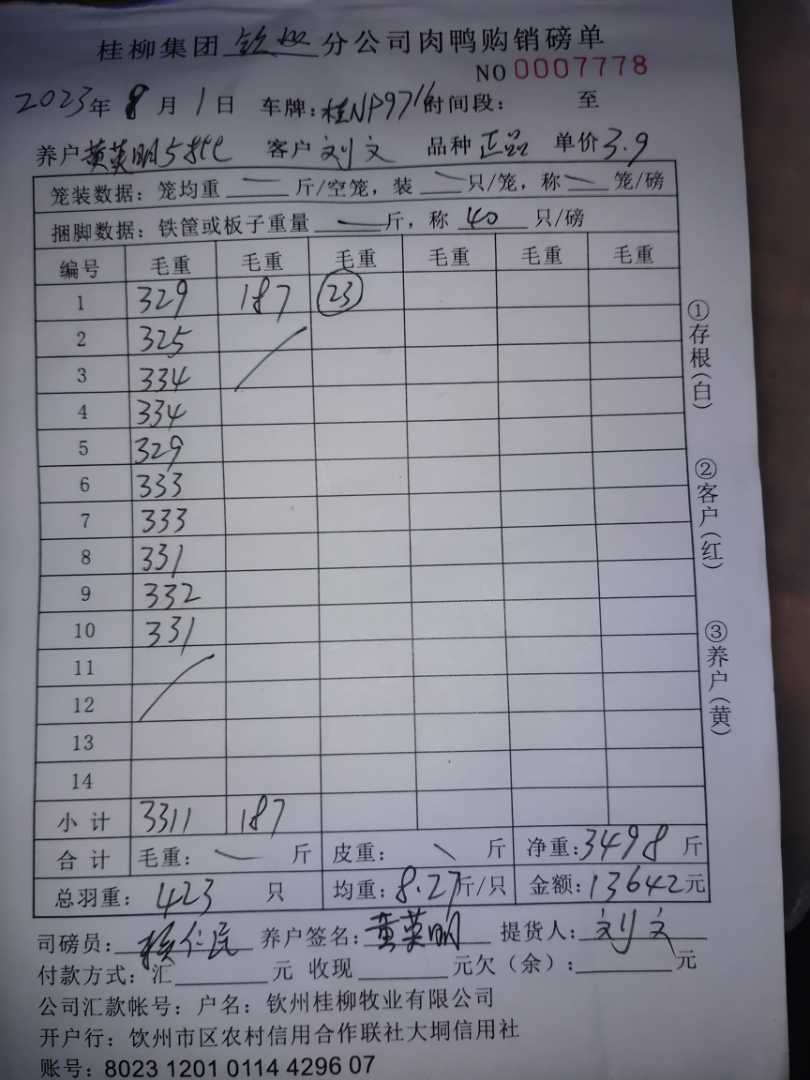 桂柳集团 钦州 分公司肉鸭购销磅单
NO 0007778
2023年 8月 1日 车牌:桂NP9716 时间段: 至
养户 黄英明 客户 刘文 品种 正品 单价 3.9
笼装数据:笼均重 — 斤/空笼,装 — 只/笼,称 — 笼/磅
捆脚数据:铁筐或板子重量 — 斤,称 40 只/磅
编号 毛重 毛重 毛重 毛重 毛重 毛重
1 329 187 23
2 325
3 334
4 334
5 329
6 333
7 333
8 331
9 332
10 331
11
12
13
14
小计 3311 187
合计 毛重: — 斤 皮重: — 斤 净重:3498 斤
总羽重: 423 只 均重:8.27斤/只 金额:13642元
司磅员: 养户签名:黄英明 提货人:刘文
付款方式:汇 元 收现 元欠(余): 元
公司汇款帐号:户名:钦州桂柳牧业有限公司
开户行:饮州市区农村信用合作联社大垌信用社
账号:8023 1201 0114 4296 07
①存根(白)
②客户(红)
③养户(黄)